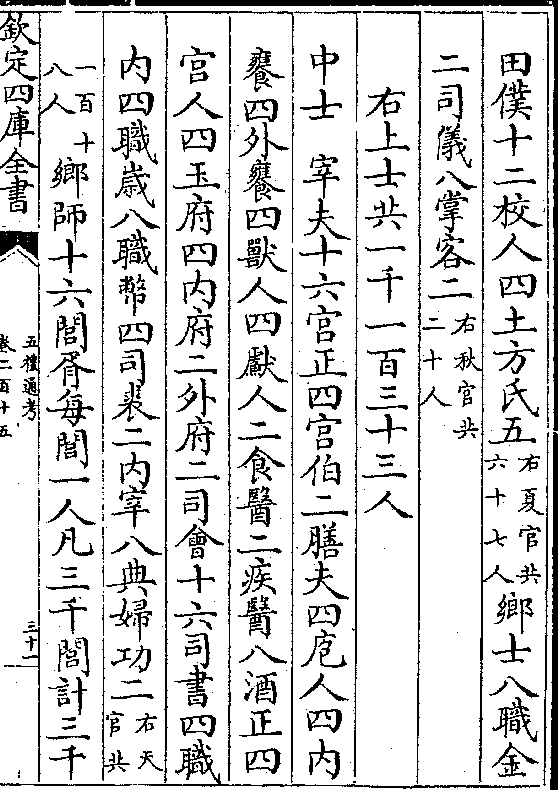 田僕十二校人四土方氏五右夏官共六十七人鄉士八職金
二司儀八掌客二右秋官共二十人
右上士共一千一百三十三人
中士　宰夫十六宫正四宫伯二膳夫四庖人四内
饔四外饔四獸人四䱷人二食醫二疾醫八酒正四
宫人四玉府四内府二外府二司會十六司書四職
内四職嵗八職幣四司裘二内宰八典婦功二右天官共
一百十八人鄉師十六閭胥每閭一人凡三千閭計三千
欽定四庫全書
五禮通考
卷二百十五
三十一